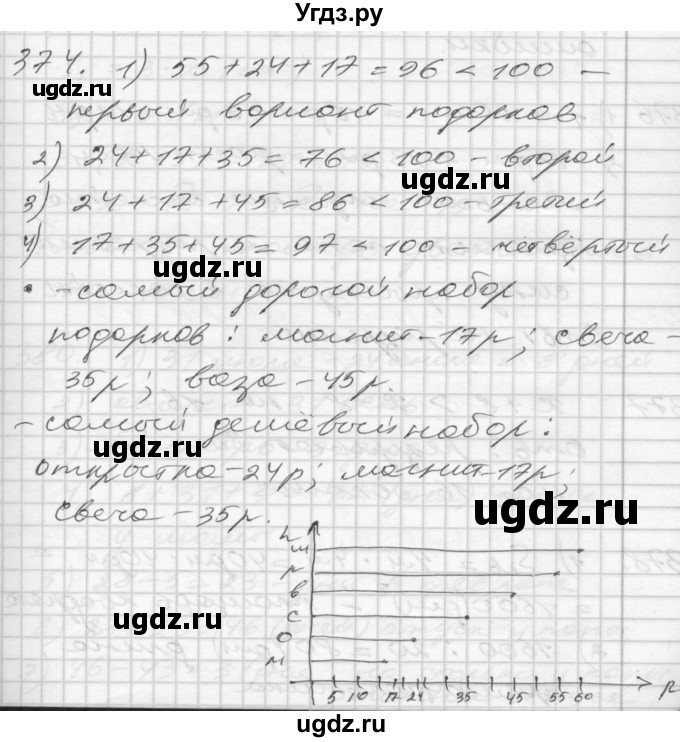 Угдз.ру
374. 1) 55 + 24 + 17 = 96 < 100 –
первый вариант подарков
2) 24 + 17 + 35 = 76 < 100 – второй
3) 24 + 17 + 45 = 86 < 100 – третий
4) 17 + 35 + 45 = 97 < 100 – четвёртый
• – самый дорогой набор
подарков: магнит – 17 р; свеча –
35 р; ваза – 45 р.
– самый дешёвый набор:
открытка – 24 р; магнит – 17 р;
свеча – 35 р.
ugdz.ru
ugdz.ru
ugdz.ru
ugdz.ru
ugdz.ru
ugdz.ru
ugdz.ru
ugdz.ru
ugdz.ru
ш
р
в
с
о
м
5 10 17 24 35 45 55 60 р
Угдз.ру